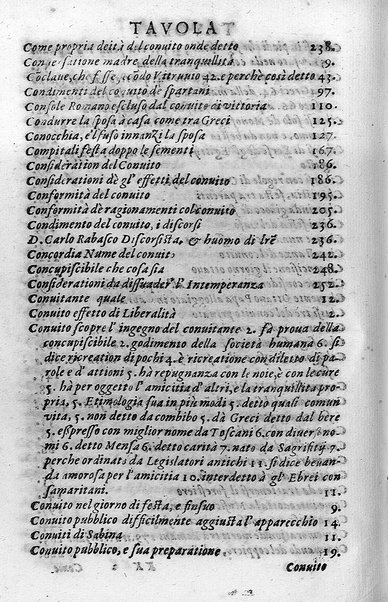 TAVOLA
Come propria deità del conuito onde detto 238.
Congregatione madre della tranquillità 9.
Coclaue, che fosse, secõdo Vitruuio 42. e perchè così detto 43.
Condimenti del conuito de spartani 97.
Console Romano escluso dal conuito di vittoria 110.
Condurre la sposa à casa frà Greci 125.
Conocchia, e'l fuso innanzi la sposa 127.
Compitali festa doppo le sementi 167.
Consideration del Conuito 186.
Considerationi dè gl' effetti del conuito 186.
Conformità del conuito 195.
Conformità dè ragionamenti col conuito 205.
Condimento del conuito, i discorsi 236.
D. Carlo Rabasco Discorsista, & huomo di lrẽ 236.
Concordia Name del conuito 242.
Concupiscibile che cosa sia 248.
Considerationi da dissuader l' Intemperanza 252.
Conuitante quale 12.
Conuito effetto di Liberalità 2.
Conuito scopre l'ingegno del conuitante 2. fà proua della
concupiscibile 2. godimento della società humana 6. si
dice ricreation di pochi 4. è ricreatione con diletto di pa-
role e d' attioni 5. hà repugnanza con le noie, è con le cure
5. hà per oggetto l' amicitia d' altri, e la tranquillità pro-
pria, 5. Etimologia sua in più modi 5. detto quasi comun
vita, 5. non detto da combibo 5. dà Greci detto dal bere
5. espresso con miglior nome da Toscani 6. con diuersi no-
mi 6. detto Mensa 6. detto carità 7. nato da Sagrifity 7.
perche ordinato da Legislatori antichi 11. si dice beuan-
da amorosa per l' amicitia 10. interdetto à gl' Ebrei con
samaritani. 11.
Conuito nel giorno di festa, e fin suo 9.
Conuito publico difficilmente aggiusta l' apparecchio 14
Conuiti di Sabina 11.
Conuito publico, e sua preparatione 19.
Conuito